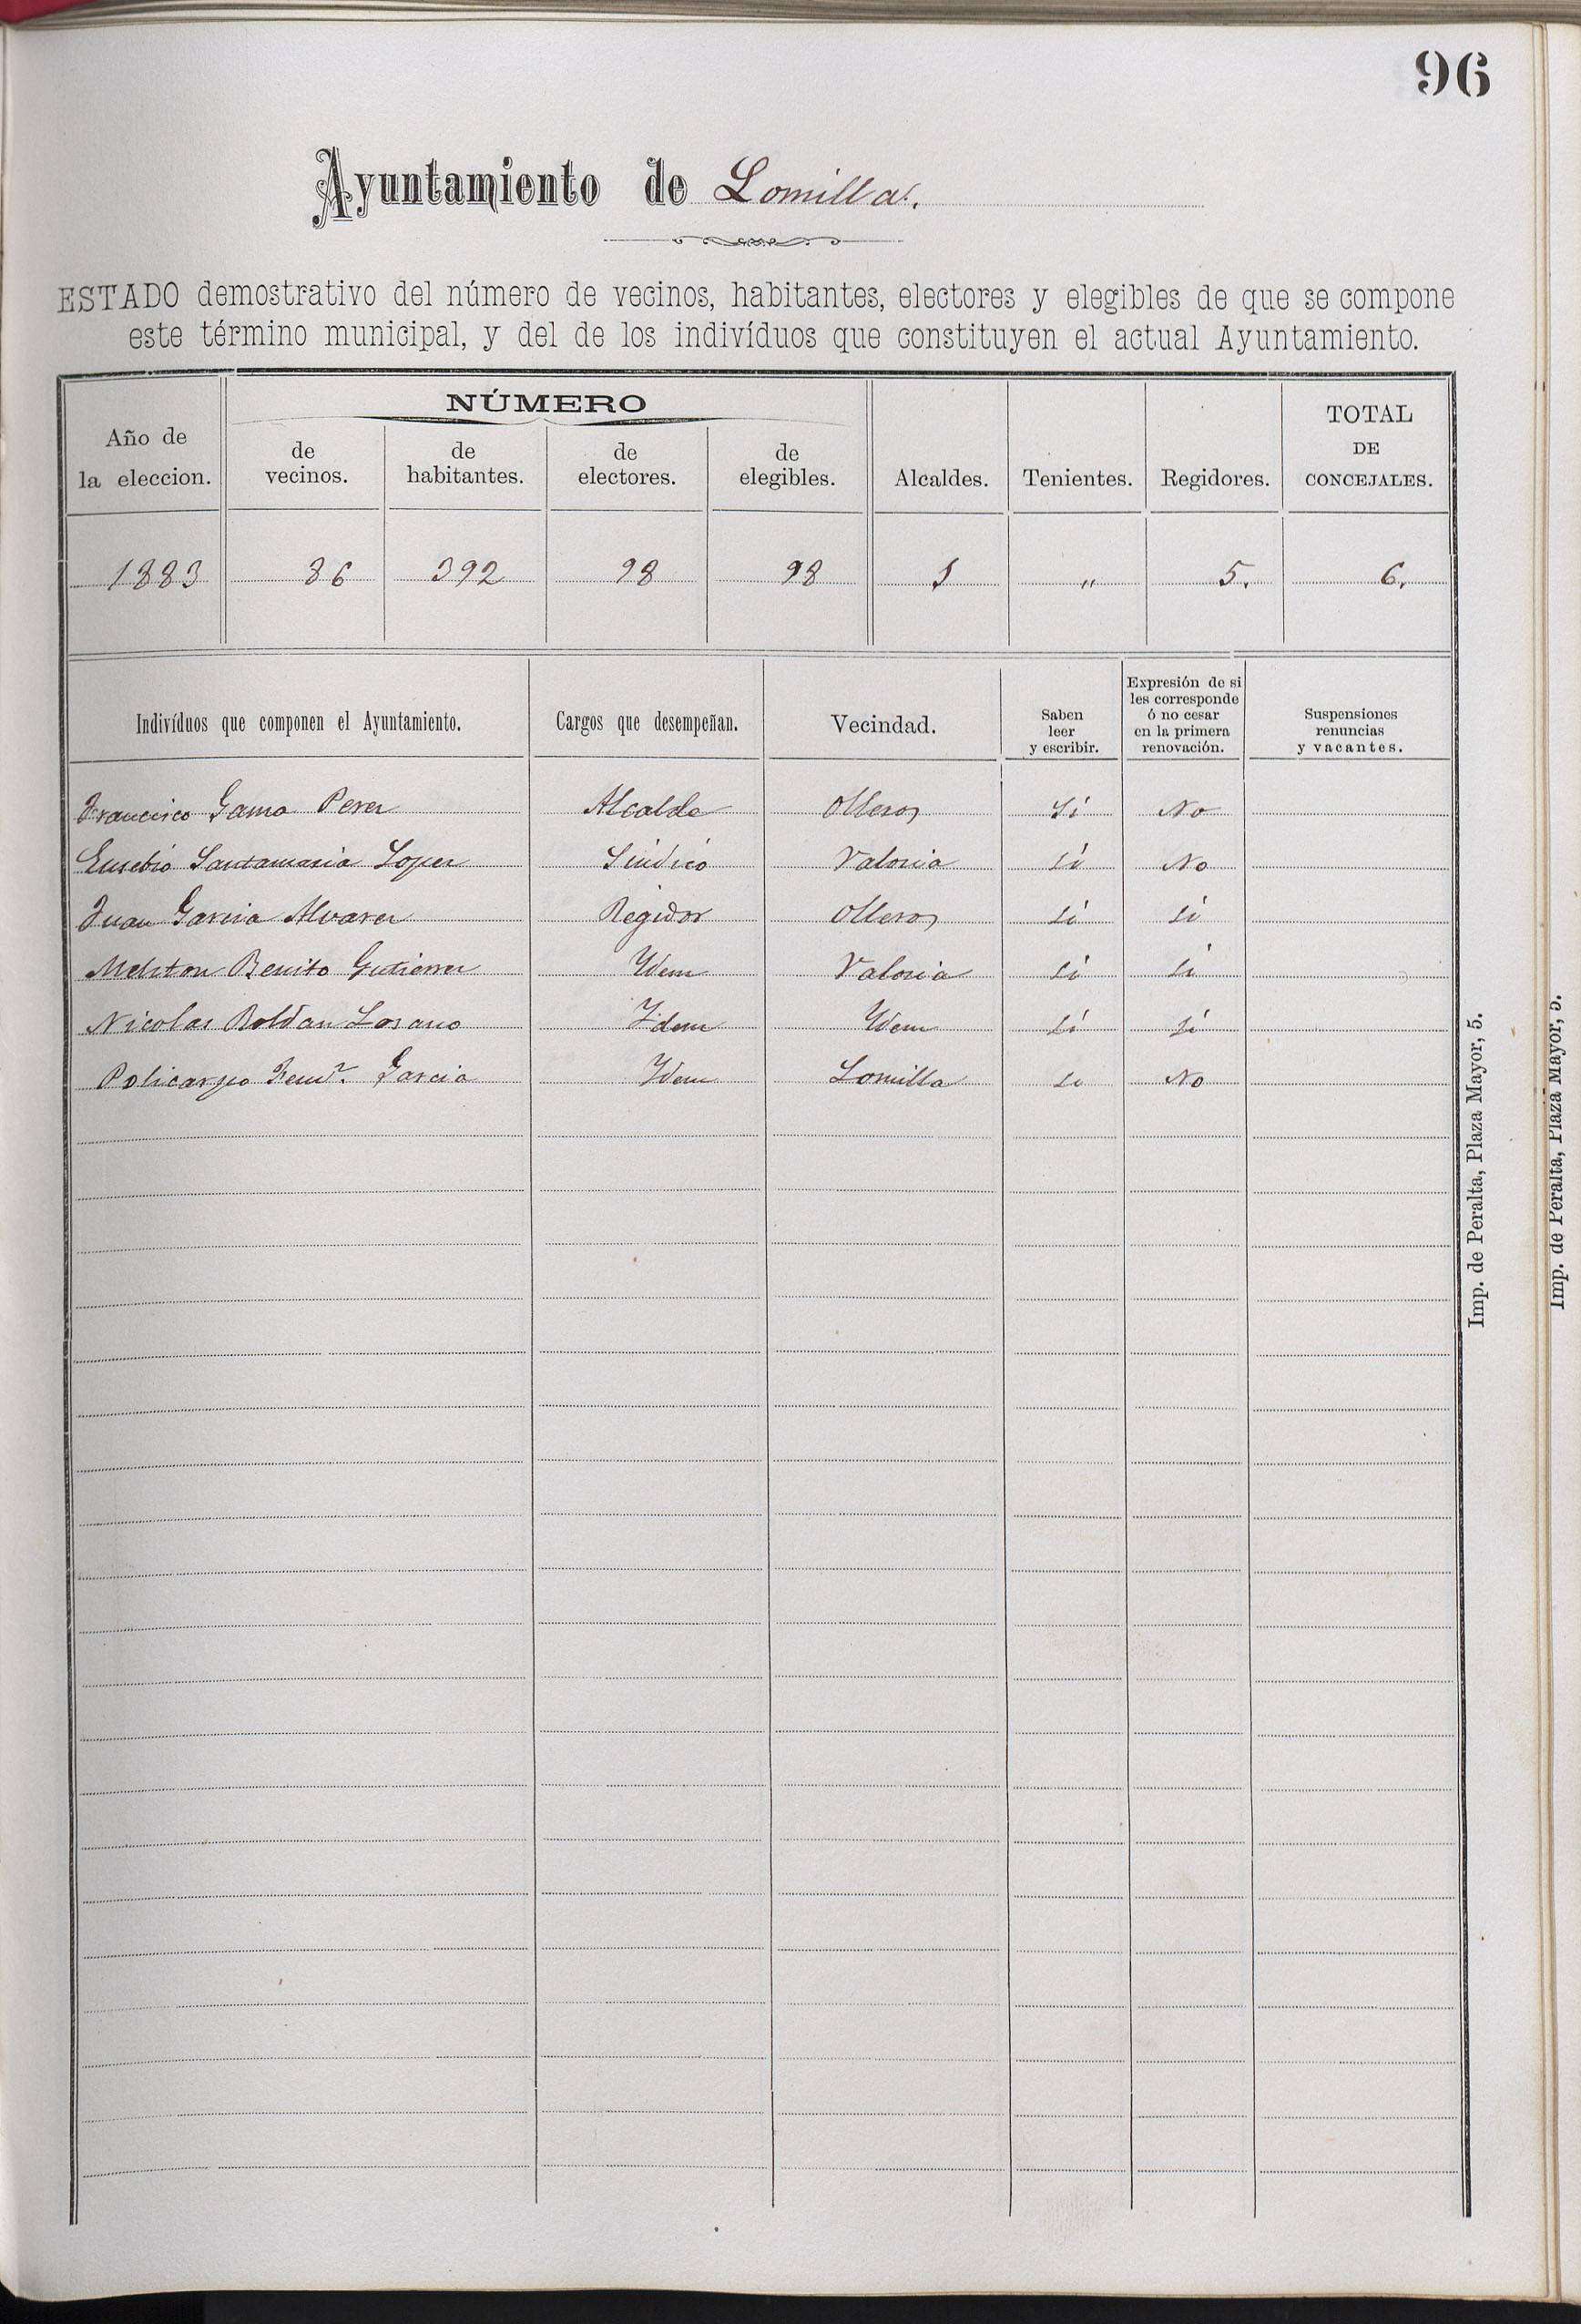 96
Ayuntamiento de Lomilla.
ESTADO demostrativo del número de vecinos, habitantes, electores y elegibles de que se compone
este término municipal, y del de los indivíduos que constituyen el actual Ayuntamiento.
Año de la eleccion.
NÚMERO
de vecinos.
de habitantes.
de electores.
de elegibles.
Alcaldes.
Tenientes.
Regidores.
TOTAL DE CONCEJALES.
1883 86 392 98 98 1 " 5. 6.
Indivíduos que componen el Ayuntamiento.
Cargos que desempeñan.
Vecindad.
Saben leer y escribir.
Expresión de si les corresponde ó no cesar en la primera renovación.
Suspensiones renuncias y vacantes.
Francisco Gama Perez Alcalde Olleros Sí No
Eusebio Santamaria Lopez Síndico Valoria Sí No
Juan Garcia Alvarez Regidor Olleros Sí Sí
Meliton Benito Gutierrez Ydem Valoria Sí Sí
Nicolas Roldan Lozano Ydem Ydem Sí Sí
Policarpo Garcia Ydem Lomilla Si No
Imp. de Peralta, Plaza Mayor, 5.
Imp. de Peralta, Plaza Mayor, 5.